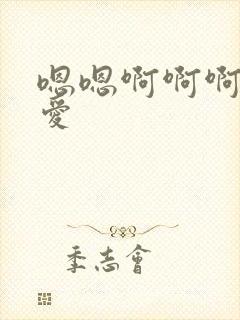 嗯嗯啊啊啊
愛
季志會